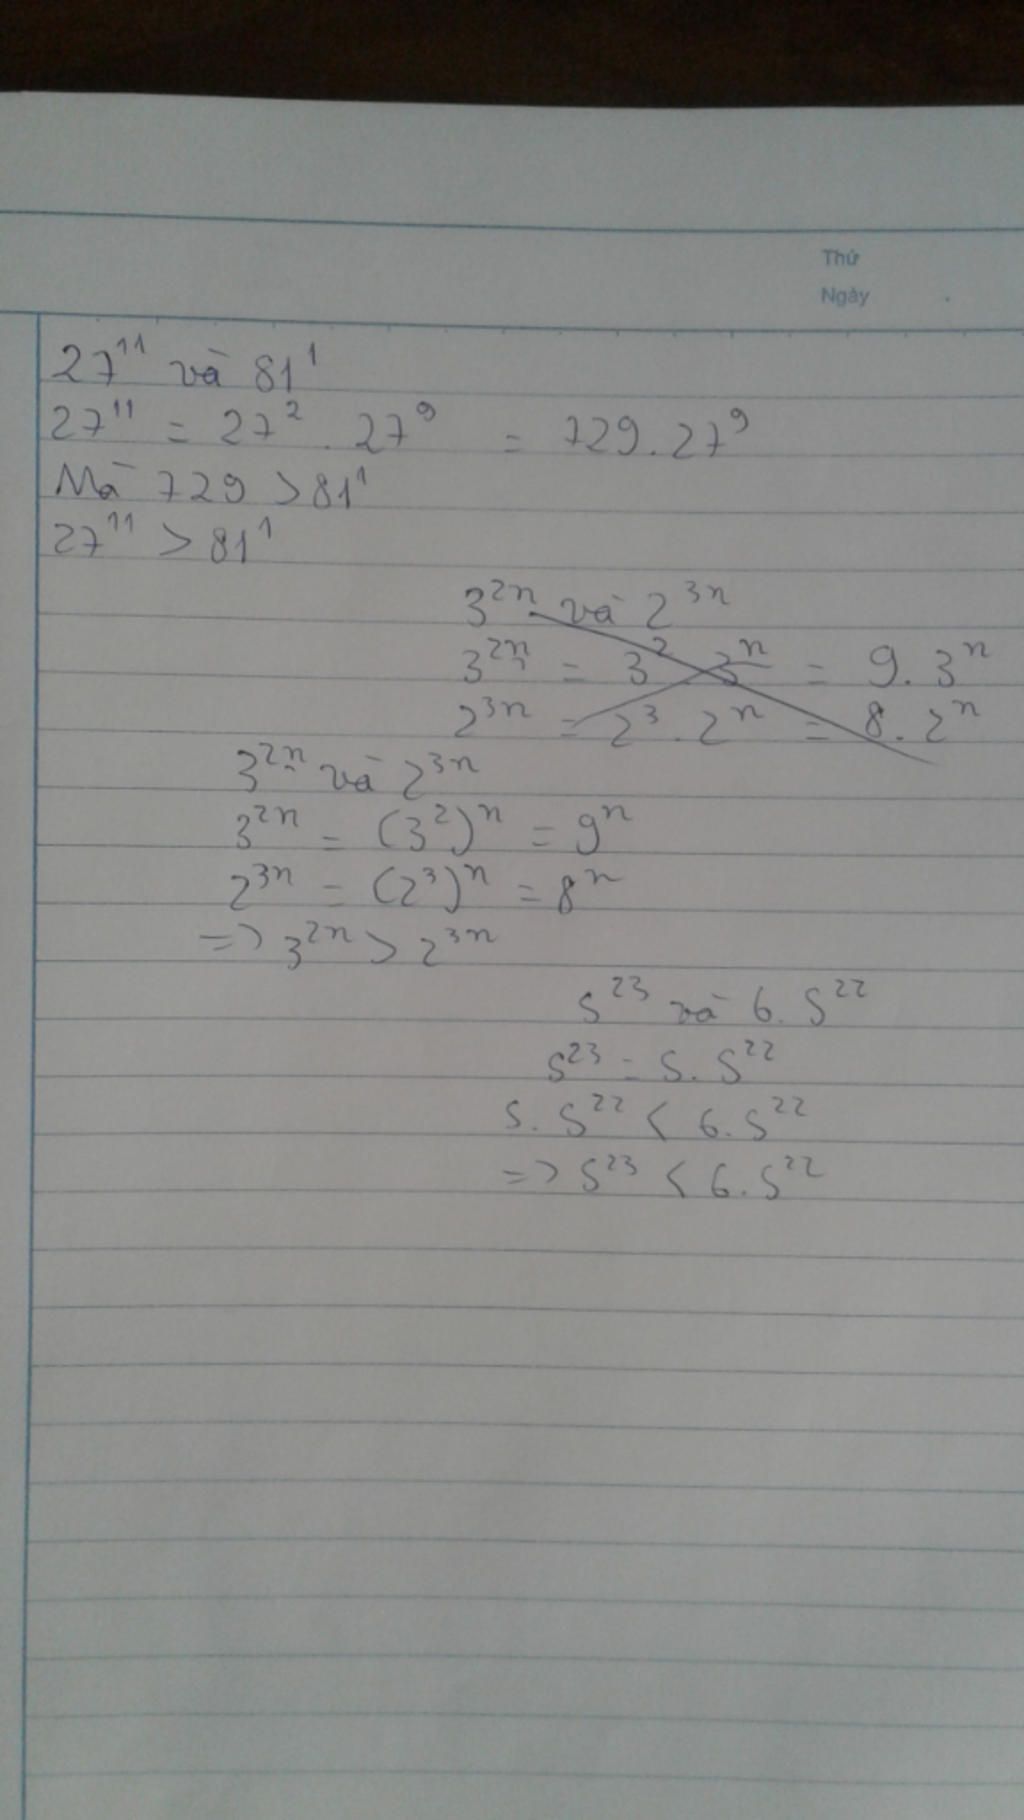 Thứ
Ngày
27¹¹ và 81¹
27¹¹ = 27² . 27⁹ = 729.27⁹
Mà 729 > 81¹
27¹¹ > 81¹
3²ⁿ và 2³ⁿ
3²ⁿ = 3² . 3ⁿ = 9.3ⁿ
2³ⁿ = 2³ . 2ⁿ = 8.2ⁿ
3²ⁿ và 2³ⁿ
3²ⁿ = (3²)ⁿ = 9ⁿ
2³ⁿ = (2³)ⁿ = 8ⁿ
=> 3²ⁿ > 2³ⁿ
5²³ và 6.5²²
5²³ = 5.5²²
5.5²² < 6.5²²
=> 5²³ < 6.5²²